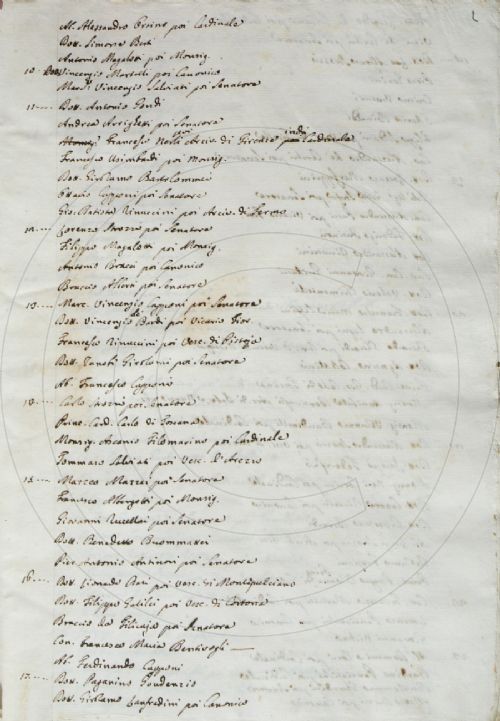 2
M. Alessandro Orsino poi Cardinale
Dott. Simone Berti
Antonio Magalotti poi Monsig.
10 Dott. Vincenzio Martelli poi Canonico
Vincenzio Salviati poi Senatore
11 Dott. Antonio
Andrea Arrighetti poi Senatore
Francesco Nerli poi Arciv. di Firenze indi Cardinale
Francesco Usimbardi poi Monsig.
Dott. Girolamo Bartolommei
Ottavio Capponi poi Senatore
Gio. Batista Rinuccini poi Arciv. di Fermo
Lorenzo Strozzi poi Senatore
Filippo Magalotti poi Monsig.
Antonio Bracci poi Canonico
Braccio Alberti poi Senatore
13 Marc. Vincenzio Capponi poi Senatore
Dott. Vincenzio de Bardi poi Vicario Fior.
Francesco Rinuccini poi Vesc. di Pistoja
Dott. Zanobi Girolami poi Senatore
Ab. Francesco Capponi
Carlo Strozzi poi Senatore
Princ. Card. Carlo di Toscana
Monsig. Ascanio Filomarino poi Cardinale
Tommaso Salviati poi Vesc. d'Arezzo
Marzei poi Senatore
Francesco Albergotti poi Monsig.
Giovanni Rucellai poi Senatore
Dott. Benedetto Buommattei
Pier Antonio Antinori poi Senatore
16 Dott. Lionardo Dati poi Vesc. di Montepulciano
Dott. Filippo Galilei poi Vesc. di Cortona
Braccio da Filicaja poi Senatore
Con. Francesco Maria Bentivogli
Ab. Ferdinando Capponi
17 Dott. Paganino Gaudenzio
Dott. Girolamo Lanfredini poi Canonico